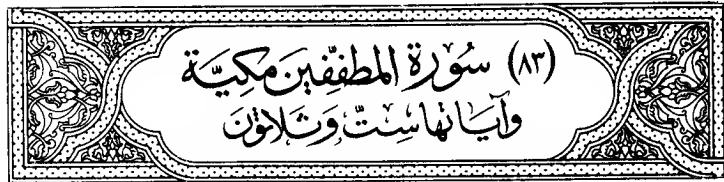 (٨٣) سُورَة المطفّفين مكيّة
وآياتها ستّ وثلاثون